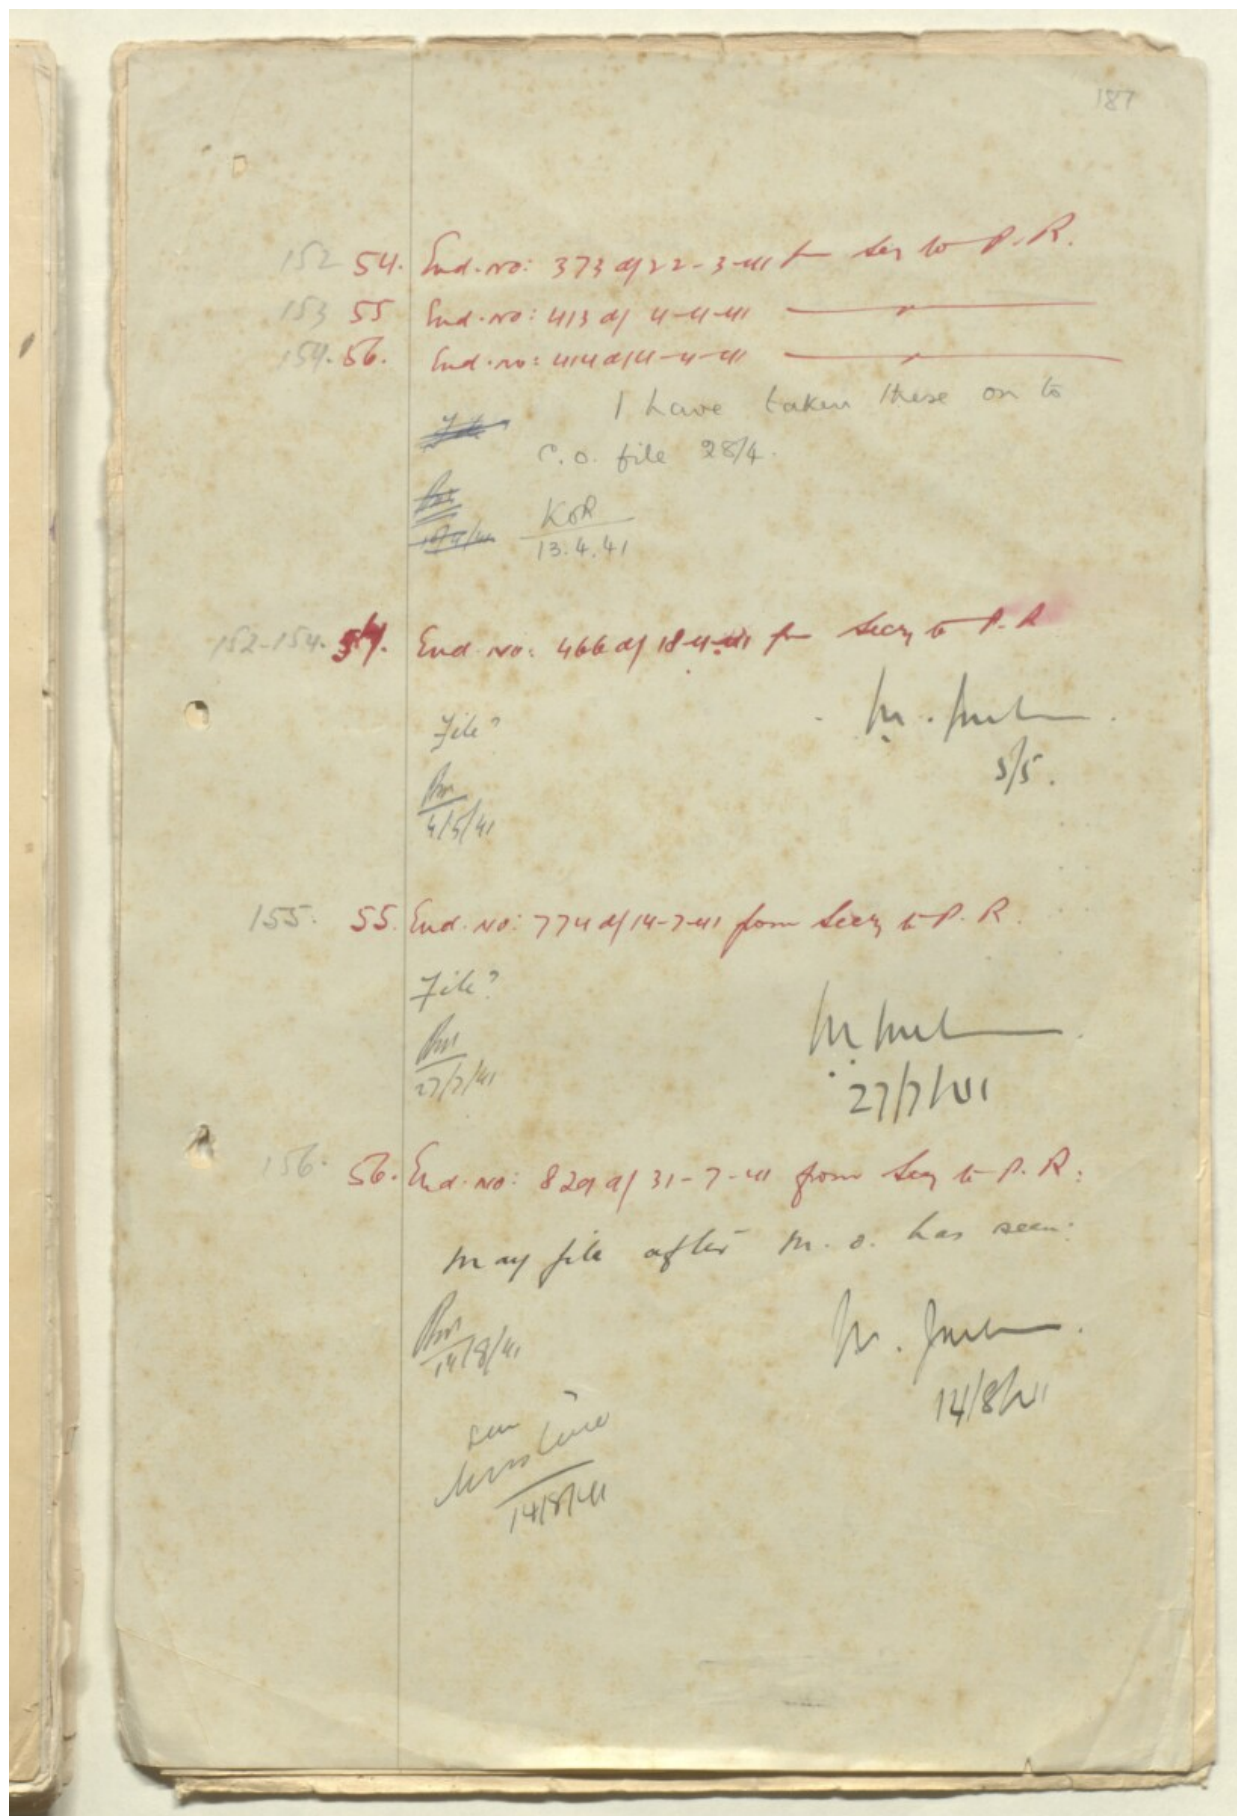 187
152 54. End. no: 373 d/ 22-3-41 fm Secy to P. R.
153 55 End. no: 413 d/ 4-4-41 ——— " ———
154. 56. End. no: 414 d/ 4-4-41 ——— " ———
I have taken these on to
C.O. file 28/4.
13.4.41
152-154. 54. End. no: 466 d/ 18-4-41 fm Secy to P. R
File?
5/5.
4/5/41
155. 55. End. no: 774 d/ 14-7-41 from Secy to P. R.
File?
27/7/41
27/7/41
156. 56. End. no: 829 d/ 31-7-41 from Secy to P. R.
May file after M. O. has seen.
14/8/41
14/8/41
seen
14/8/41